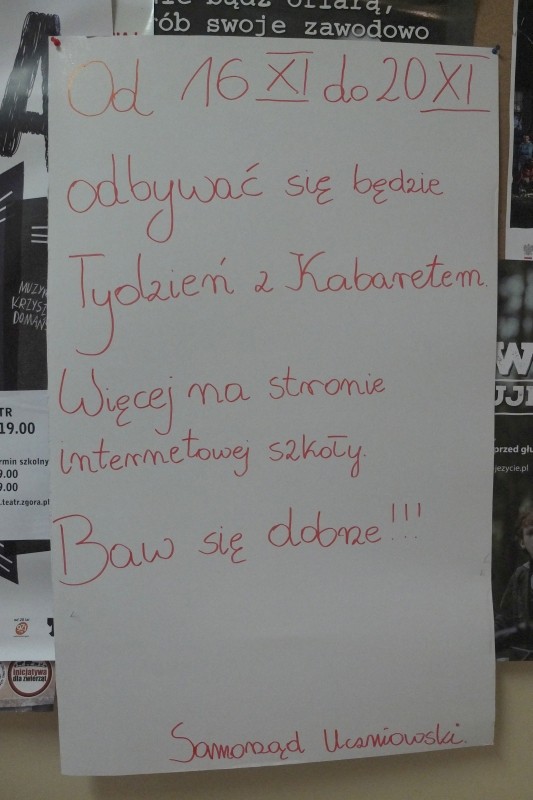 nie bądź ofiarą,
rób swoje zawodowo
Od 16 XI do 20 XI
odbywać się będzie
Tydzień z Kabaretem.
Więcej na stronie
internetowej szkoły.
Baw się dobrze!!!
Samorząd Uczniowski.
A
MUZYK
KRZYSZ
DOMAŃ
TR
19.00
rmin szkolny
9.00
9.00
.teatr.zgora.pl
inicjatywa
dla zwierząt
W
UJE
przed głu
jezycie.pl